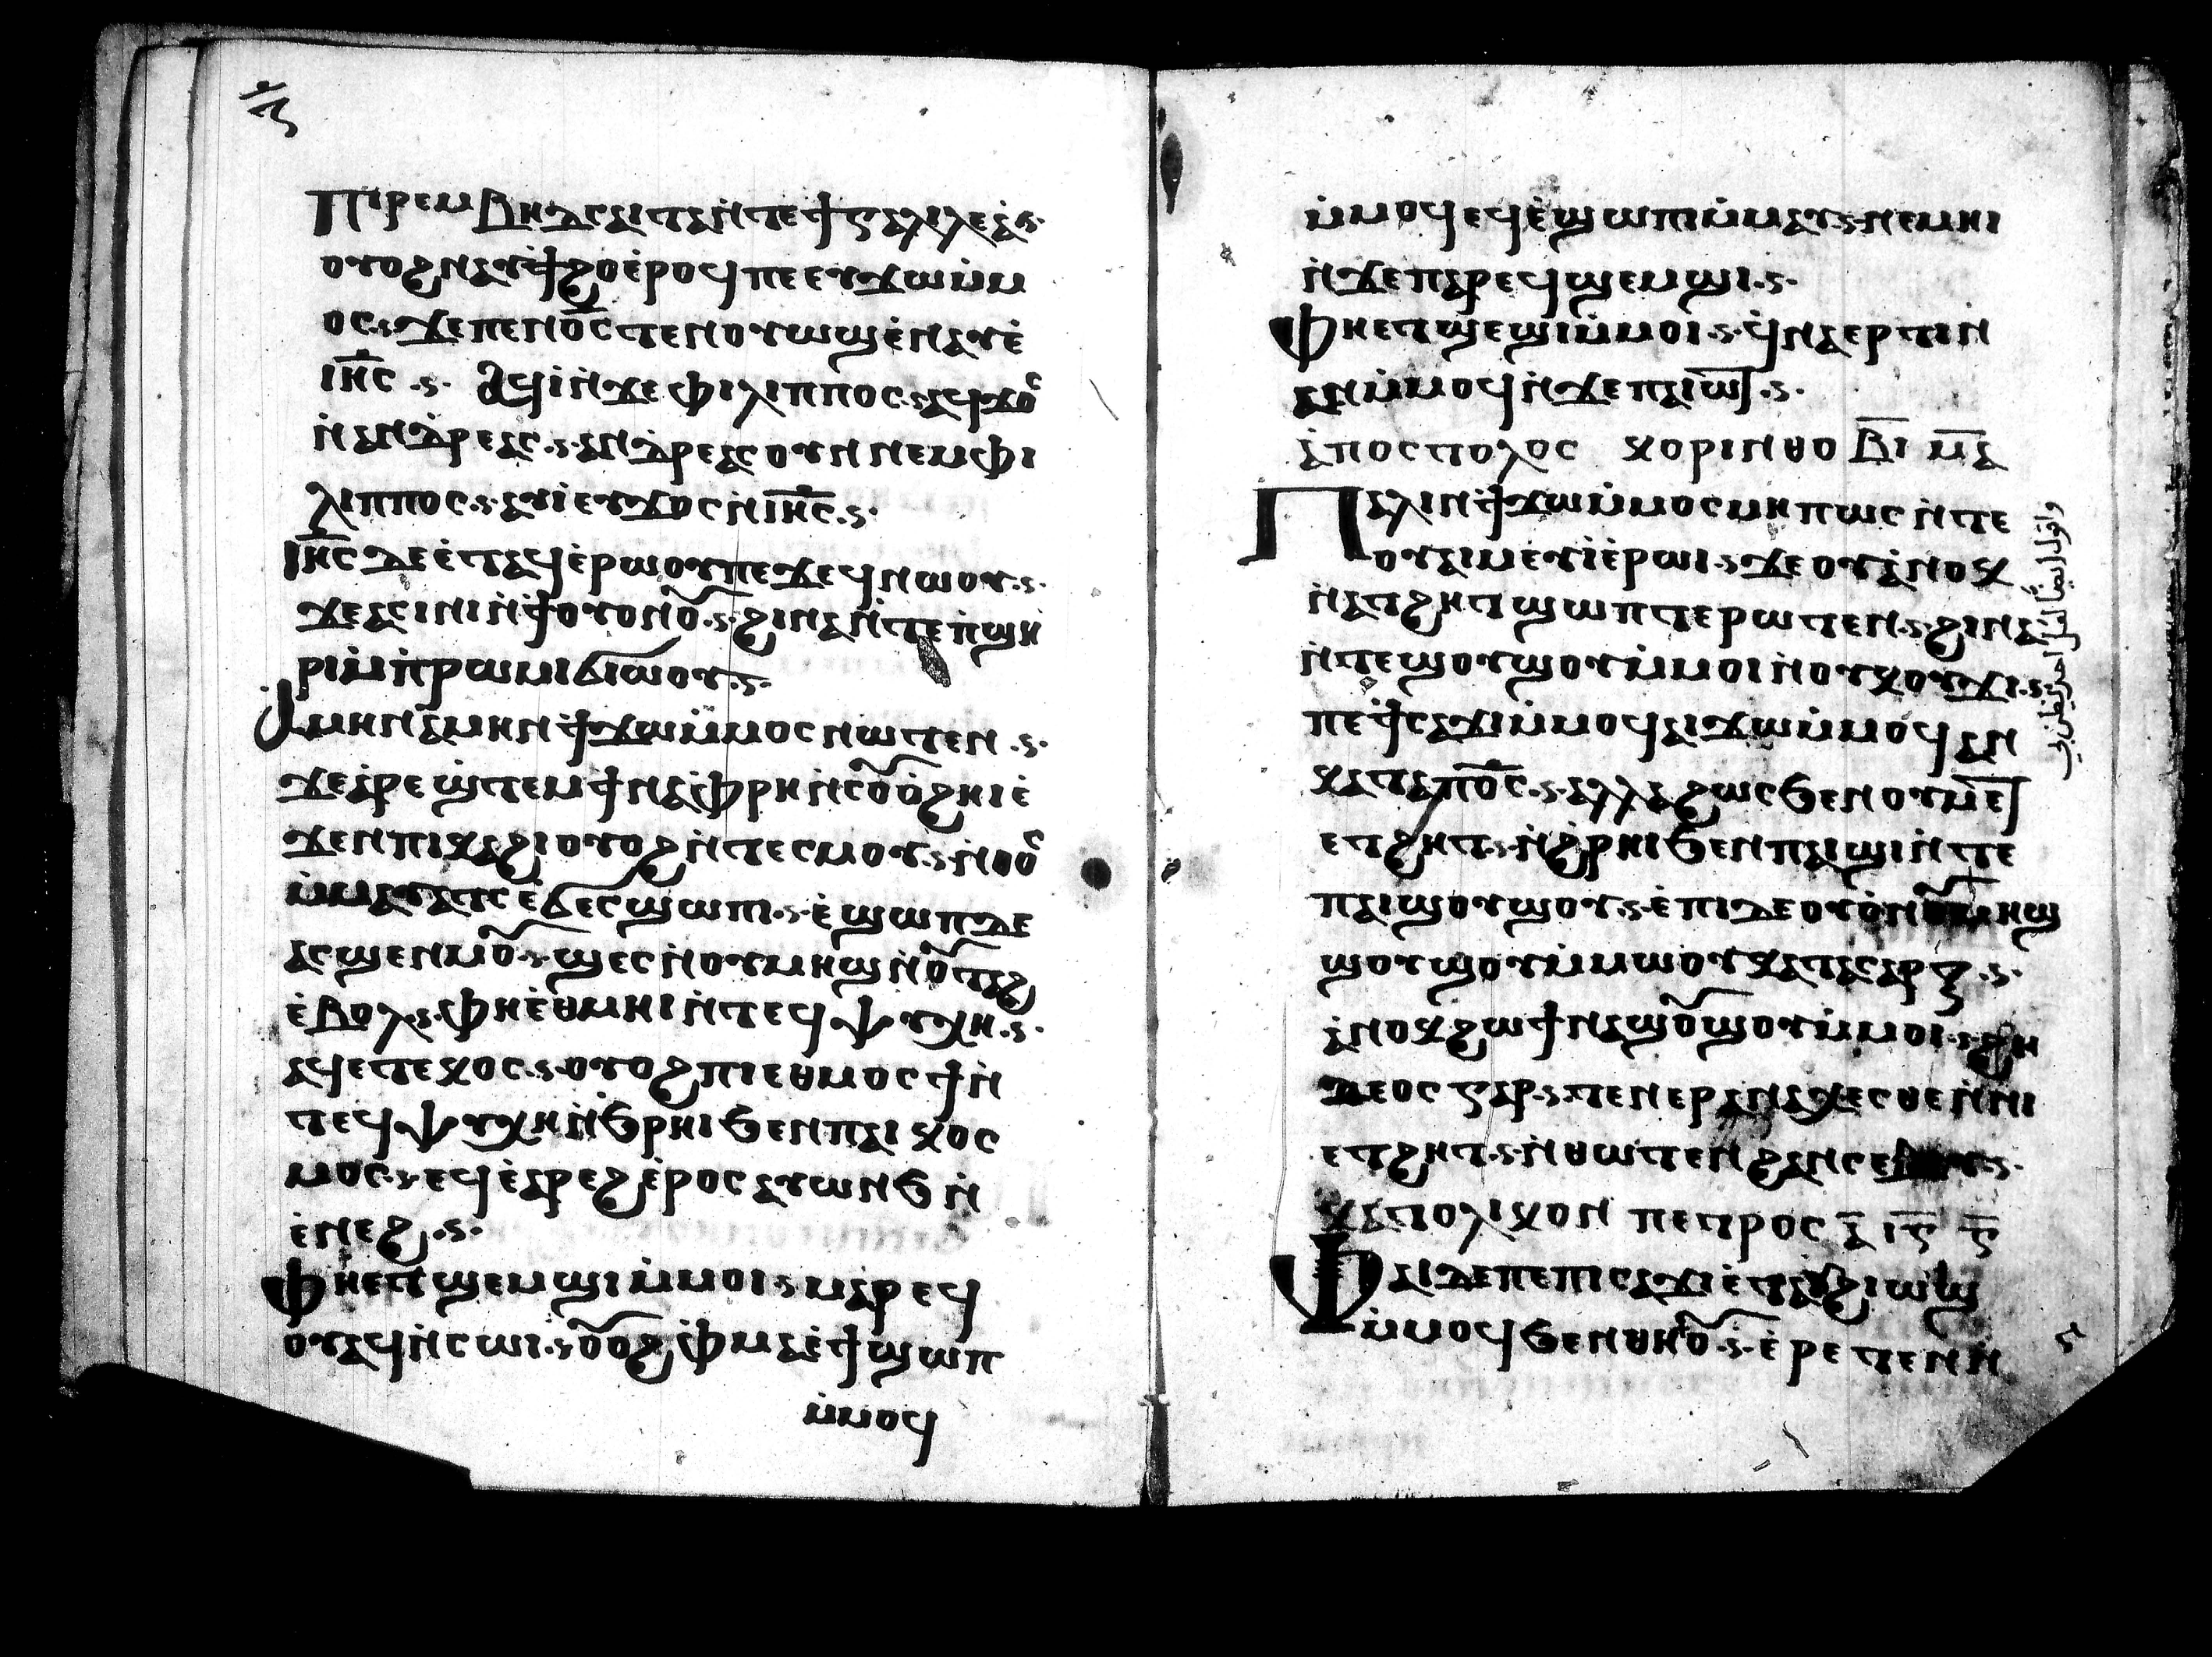 ⲡⲓⲣⲉⲙⲃⲏⲇⲥⲁⲓⲧⲁⲛ̇ⲧⲉϯⲅⲁⲗⲓⲗⲉⲁ̇
ⲟⲩⲟϩⲛⲁⲩϯϩⲟⲉ̇ⲣⲟϥⲡⲉⲉⲩϫⲱⲙ̇ⲙ
ⲟⲥ ϫⲉⲡⲉⲛⲟ̅ⲥ̅ⲧⲉⲛⲟⲩⲱϣⲉ̇ⲛⲁⲩⲉ̇
ⲓⲏ̅ⲥ̅ ⲁϥⲓ̇ⲛ̇ϫⲉⲫⲓⲗⲓⲡⲡⲟⲥ ⲁϥϫⲟ̄
ⲛ̇ⲁⲛⲇⲣⲉⲁⲥ ⲁⲛⲇⲣⲉⲁⲥⲟⲩⲛⲛⲉⲙⲫⲓ
ⲗⲓⲡⲡⲟⲥ ⲁⲩⲓ̇ⲉⲩϫⲟⲥⲛ̇ⲓⲏ̅ⲥ̅
ⲓⲏ̅ⲥ̅ⲇⲉⲉ̇ⲧⲁϥⲉ̇ⲣⲱⲟⲩⲡⲉϫⲉϥⲛⲱⲟⲩ
ϫⲉⲁⲥⲓⲛⲓⲛ̇ϯⲟⲩⲟⲛⲟ̄ ϩⲓⲛⲁⲛ̇ⲧⲉⲡ̇ϣⲏ
ⲣⲓⲙ̇ⲡ̇ⲣⲱⲙⲓϭⲓⲱⲟⲩ
ⲁ̇ⲙⲏⲛⲁ̇ⲙⲏⲛϯϫⲱⲙ̇ⲙⲟⲥⲛⲱⲧⲉⲛ
ϫⲉⲁⲣⲉϣ̇ⲧⲉⲙϯⲛⲁⲫ̇ⲣⲏⲛ̇ⲥⲟ̄ⲟ̇ϩⲏⲓⲉ̇
ϫⲉⲛⲡⲓⲕⲁϩⲓⲟⲩⲟϩⲛ̇ⲧⲉⲥⲙⲟⲩ ⲛ̇ⲑⲟ̄
ⲙ̇ⲙⲁⲩⲁⲧⲥⲉ̇ϭⲉⲥϣⲱⲡⲓ ⲉ̇ϣⲱⲡⲇⲉ
ⲁⲥϣⲉⲛⲙⲟ̄ ϣⲉⲥⲛ̇ⲟⲩⲙⲏϣⲛ̇ⲟ̄ⲧⲁϩ
ⲉ̇ⲃⲟⲗ ⲫⲏⲉ̇ⲑⲙⲏⲓⲛ̇ⲧⲉϥⲯⲩⲭⲏ
ⲁϥⲉⲧⲉⲕⲟⲥ ⲟⲩⲟϩⲡⲓⲉⲑⲙⲟⲥϯⲛ̇
ⲧⲉϥⲯⲩⲭⲏⲛ̇ϧⲣⲏⲓϧⲉⲛⲡⲁⲓⲕⲟⲥ
ⲙⲟⲥ ⲉϥⲉ̇ⲁⲣⲉϩⲉ̇ⲣⲟⲥⲁⲩⲱⲛϧⲛ̇
ⲉ̇ⲛⲉϩ
ⲫⲏⲉⲧϣⲉⲙϣⲓⲙ̇ⲙⲟⲓ ⲙⲁⲣⲉϥ
ⲟⲩⲁϥⲛ̇ⲥⲱⲓ ⲟ̄ⲟϩⲫ̇ⲙⲁⲉ̇ϯϣⲱⲡ
ⲙ̇ⲙⲟϥ
ⲙ̇ⲙⲟϥⲉϥⲉ̇ϣⲱⲡⲓⲙ̇ⲙⲁⲩ ⲛⲉⲙⲏⲓ
ⲛ̇ϫⲉⲡⲁⲣⲉϥϣⲉⲙϣⲓ
ⲫⲏⲉⲧϣⲉϣⲓⲙ̇ⲙⲟⲓ ϥ̇ⲛⲁⲉⲣⲧⲓⲙ
ⲁⲛⲙ̇ⲙⲟϥⲛ̇ϫⲉⲡⲁⲓⲱ̅ⲧ
ⲁ̇ⲡⲟⲥⲧⲟⲗⲟⲥ ⲕⲟⲣⲓⲛⲑⲟ ⲃ̅ⲓ ⲙ̅ⲁ
ⲡⲁⲗⲓⲛϯϫⲱⲙ̇ⲙⲟⲥⲙⲏⲡⲱⲥⲛ̇ⲧⲉ
ⲟⲩⲁⲓⲙⲉⲩⲓ̇ⲉ̇ⲣⲱⲓ ϫⲉⲟⲩⲁ̇ⲛⲟⲕ
ⲛ̇ⲁⲧϩⲏⲧϣⲱⲡⲧⲉⲣⲱⲧⲉⲛ ϩⲓⲛⲁ
ⲛ̇ⲧⲉϣⲟⲩϣⲟⲩⲙ̇ⲙⲟⲓⲛ̇ⲟⲩⲕⲟⲩϫⲓ
ⲡⲉϯⲥⲁϫⲓⲙ̇ⲙⲟϥⲁⲓϫⲱⲙ̇ⲙⲟϥⲁⲛ
ⲕⲁⲧⲁⲡⲟ̅ⲥ̅ ⲁⲗⲗⲁϩⲱⲥϧⲉⲛⲟⲩⲙ̅ⲉ̅ⲧ
ⲉⲧϩⲏⲧ ⲛ̇ϩ̇ⲣⲏⲓϧⲉⲛⲡⲁⲓϣⲓⲛ̇ⲧⲉ
ⲡⲁⲓϣⲟⲩϣⲟⲩ ⲉ̇ⲡⲓⲇⲉⲟⲩⲟ̇ⲛ
ϣⲟⲩϣⲟⲩⲙ̇ⲙⲱⲟⲩⲕⲁⲧⲁⲥⲁⲣⲝ
ⲁ̇ⲛⲟⲕϩⲱϯⲛⲁϣⲟ̄ϣⲟⲩⲙ̇ⲙⲟⲓ ϩⲏ
ⲇⲉⲟⲥⲅⲁⲣ ⲧⲉⲛⲉⲣⲁⲛⲁⲭⲉⲥⲑⲉⲛ̇ⲛⲓ
ⲉⲧϩⲏⲧ ⲛ̇ⲑⲱⲧⲉⲛϩⲁⲛⲥⲁⲃⲉⲩ
ⲕⲁⲧⲟⲗⲓⲕⲟⲛ ⲡⲉⲧⲣⲟⲥ ⲁ̅ ⲓ̅ⲋ̅ ⲋ̅
ⲫⲁⲓⲇⲉⲡⲉⲡⲓⲥⲁϫⲓⲉ̇ⲧⲁⲩϩⲓⲱⲓϣ
ⲙ̇ⲙⲟϥϧⲉⲛⲑⲏⲛⲟ̄ ⲉ̇ⲣⲉⲧⲉⲛⲛ̇